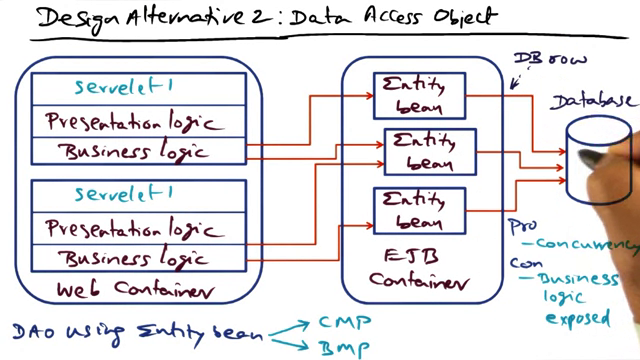 Design Alternative 2: Data Access Object
Servelet-1
Presentation logic
Business logic
Servelet-1
Presentation logic
Business logic
Web Container
Entity
bean
Entity
bean
Entity
bean
EJB
Container
DB row
Database
Pro
- Concurrency
Con
- Business
logic
exposed
DAO using Entity bean
CMP
BMP